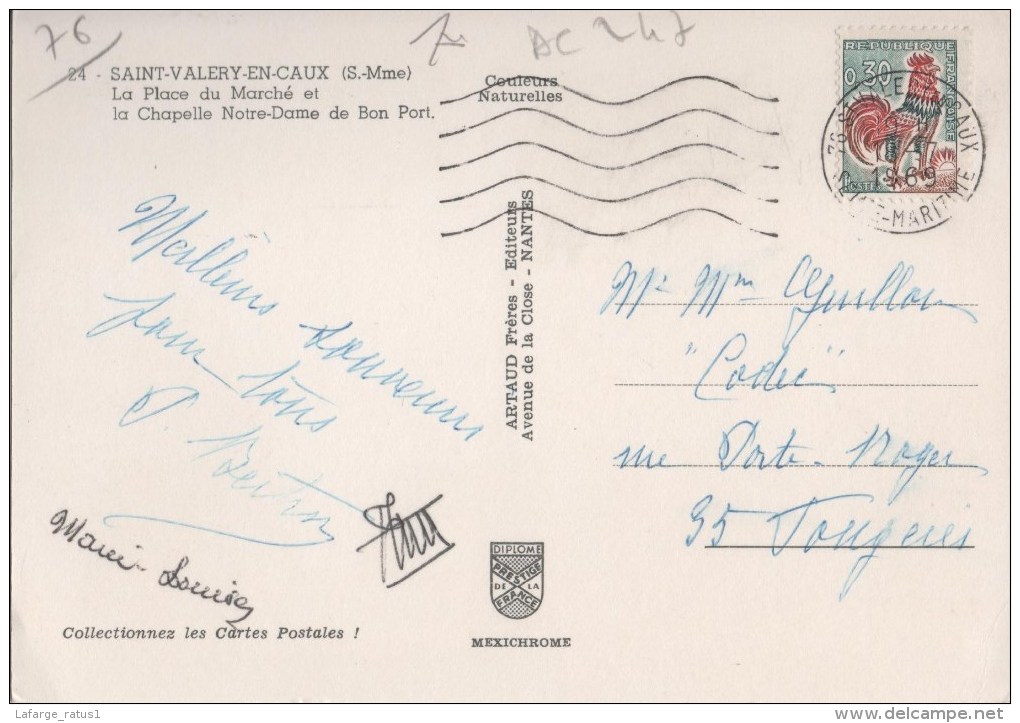 76
AC 247
24 - SAINT-VALERY-EN-CAUX (S.-Mme)
La Place du Marché et
la Chapelle Notre-Dame de Bon Port.
Couleurs
Naturelles
REPUBLIQUE FRANÇAISE
0,30
POSTES
1969
SEINE-MARITIME
Meilleurs souvenirs
pour tous
P. Bertin
Marie-Louise
ARTAUD Frères - Editeurs
Avenue de la Close - NANTES
Mr Mme Guillou
"Codec"
rue Porte-Roger
35 Fougères
DIPLOME
PRESTIGE
DE LA
FRANCE
MEXICHROME
Collectionnez les Cartes Postales !
Lafarge_ratus1
www.delcampe.net